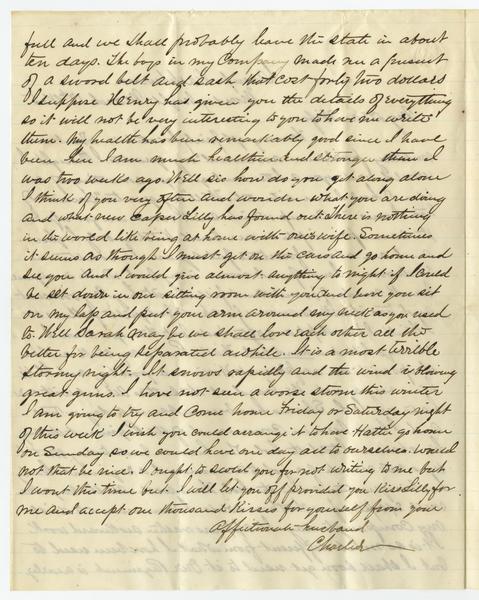 full and we shall probably leave the state in about
ten days. The boys in my Company made me a present
of a sword belt and sash that cost forty two dollars
I suppose Henry has given you the details of everything
so it will not be very interesting to you to have me write
them. My health has been remarkably good since I have
been here I am much healthier and stronger than I
was two weeks ago. Well sis how do you get along alone
I think of you very often and wonder what you are doing
and what new caper Lilly has found out. There is nothing
in the world like being at home with ones wife. Sometimes
it seems as though I must get on the cars and go home and
see you and I would give almost anything to night if I could
be set down in our sitting room with you and have you sit
on my lap and put your arm around my neck as you used
to. Well Sarah may be we shall love each other all the
better for being separated awhile. It is a most terrible
stormy night. It snows rapidly and the wind is blowing
great guns. I have not seen a worse storm this winter
I am going to try and come home Friday or Saturday night
of this week I wish you could arrange it to have Hattie go home
on Sunday so we could have one day all to ourselves. Would
not that be nice. I ought to scold you for not writing to me but
I wont this time but I will let you off provided you kiss Lilly for
me and accept one thousand kisses for yourself from your
Affectionate husband
Charlie